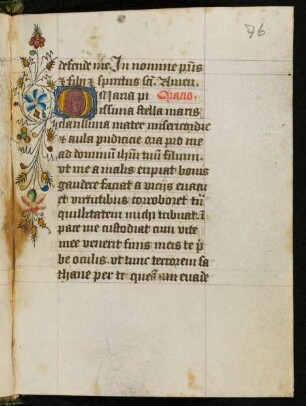 76
defende me In nomine pris
& filij & spiritus sci Amen
O Maria pi Oracio.
issima stella maris
clarissima mater misericordie
et aula pudicicie ora pro me
ad dominum ihm tuum filium.
vt me a malis eripiat bonis
gaudere faciat a vicijs euacu
et virtutibus corroboret tra
quillitatem michi tribuat. i
pace me custodiat cum vite
mee venerit finis meis te p
be oculis. vt tunc terrorem sa
thane per te queam euade